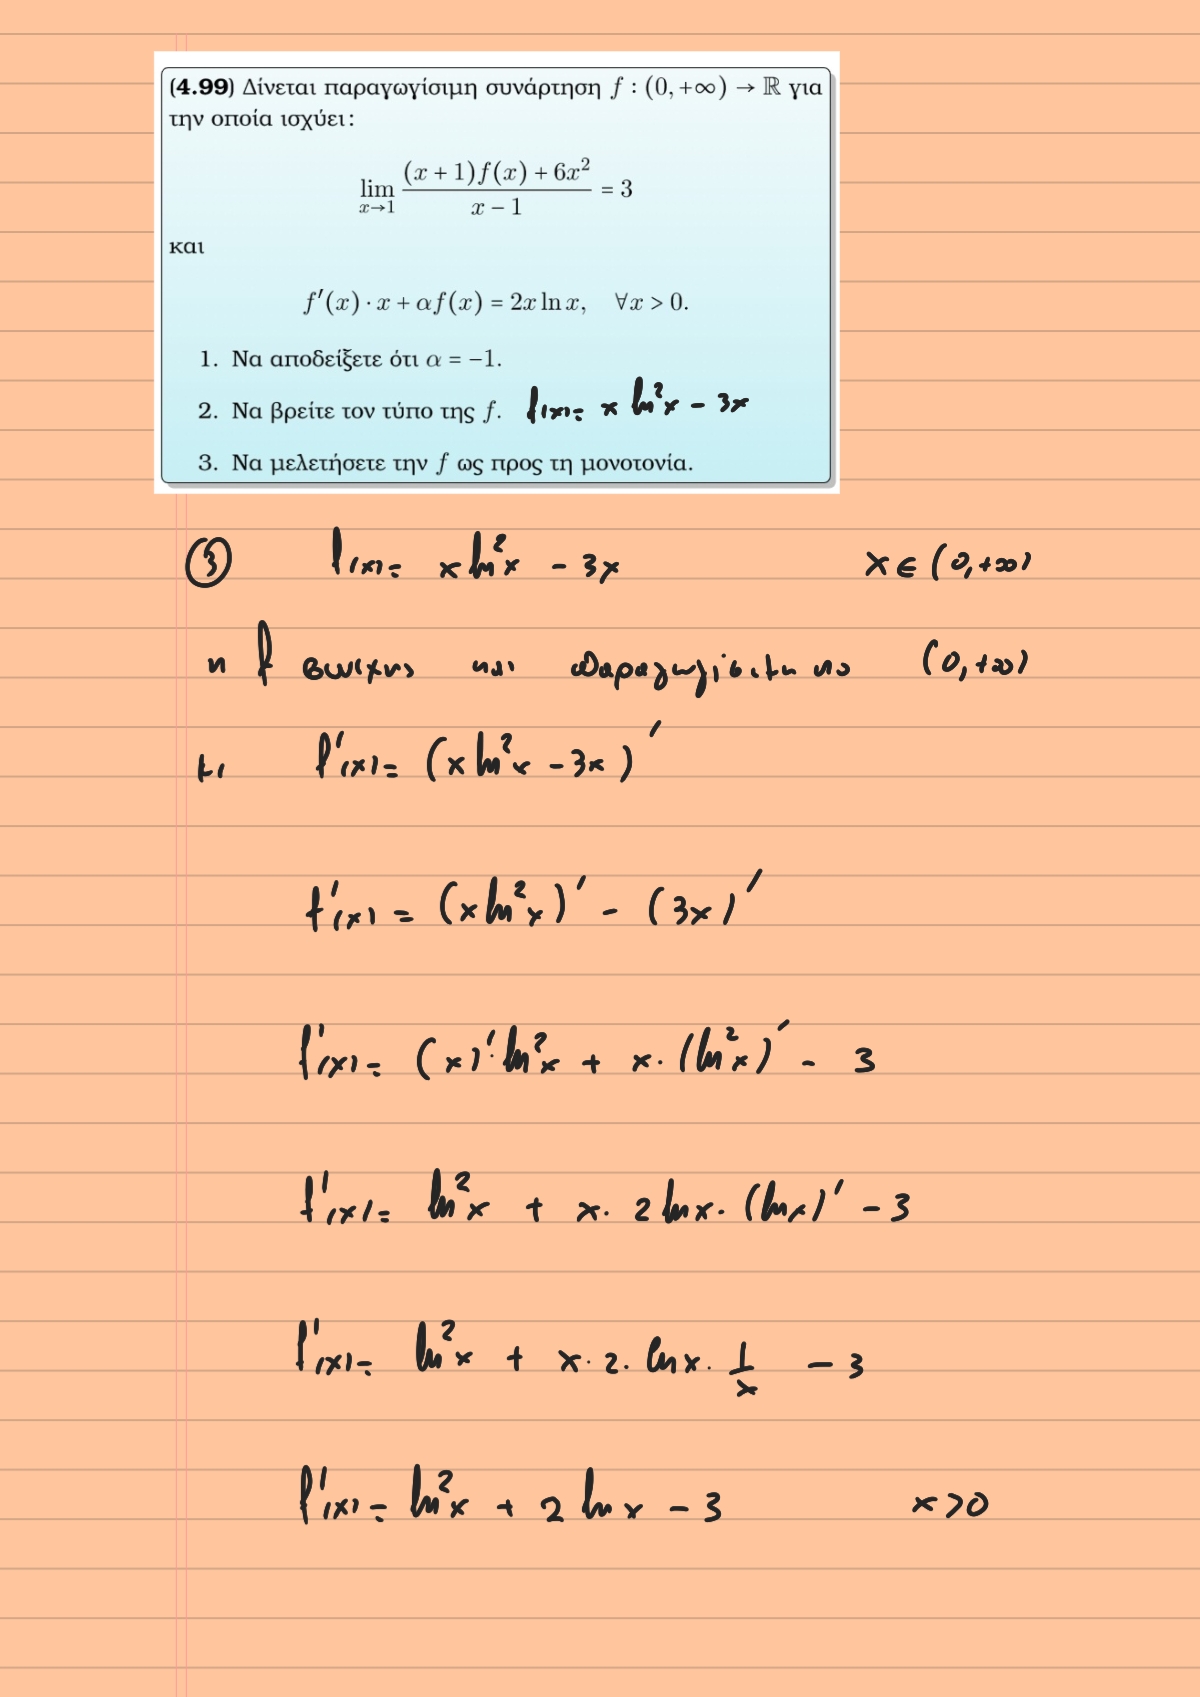 (4.99) Δίνεται παραγωγίσιμη συνάρτηση f : (0, +∞) → ℝ για
την οποία ισχύει:
lim_{x→1} ((x + 1)f(x) + 6x²)/(x − 1) = 3
και
f′(x) · x + αf(x) = 2x ln x, ∀x > 0.
1. Να αποδείξετε ότι α = −1.
2. Να βρείτε τον τύπο της f. f(x) = x ln²x − 3x
3. Να μελετήσετε την f ως προς τη μονοτονία.
③ f(x) = x ln²x − 3x x ∈ (0, +∞)
η f συνεχης και παραγωγίσιμη στο (0, +∞)
με f′(x) = (x ln²x − 3x)′
f′(x) = (x ln²x)′ − (3x)′
f′(x) = (x)′ · ln²x + x · (ln²x)′ − 3
f′(x) = ln²x + x · 2 ln x · (ln x)′ − 3
f′(x) = ln²x + x · 2 · ln x · 1/x − 3
f′(x) = ln²x + 2 ln x − 3 x > 0